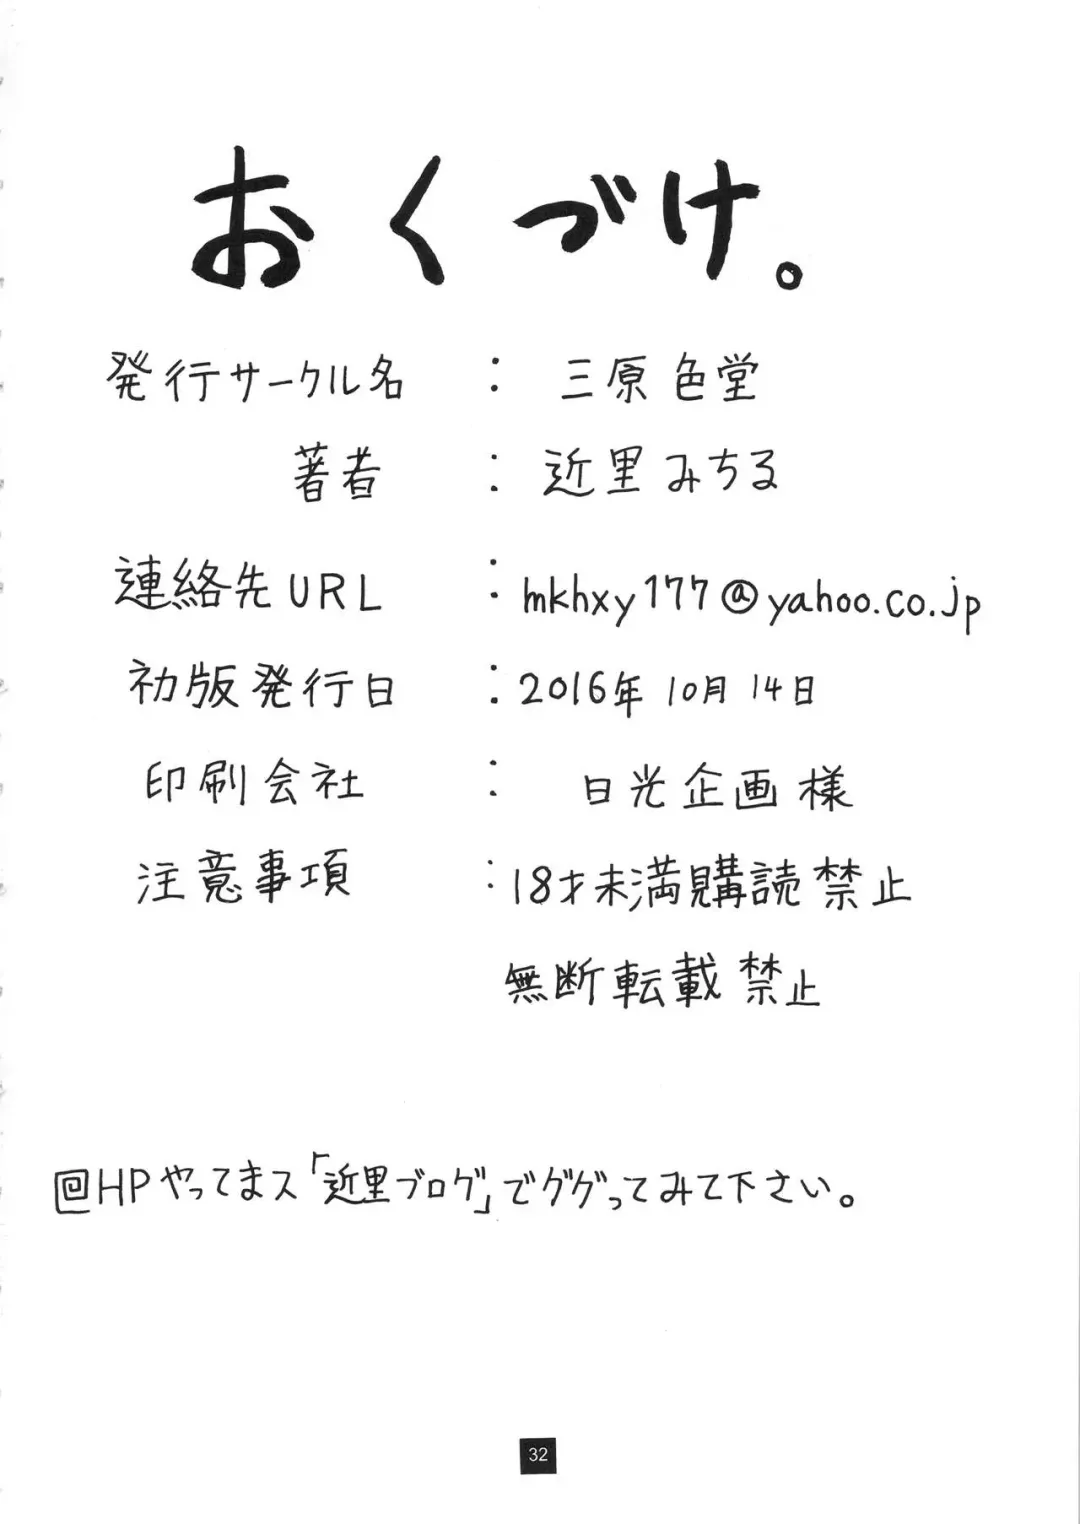 おくづけ。
発行サークル名 : 三原色堂
著者 : 近里みちる
連絡先URL : mkhxy177@yahoo.co.jp
初版発行日 : 2016年10月14日
印刷会社 : 日光企画様
注意事項 : 18才未満購読禁止
無断転載禁止
回HPやってまス「近里ブログ」でググってみて下さい。
32